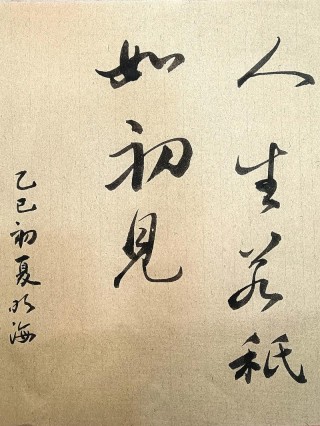 人生若祇
如初見
乙巳初夏明海